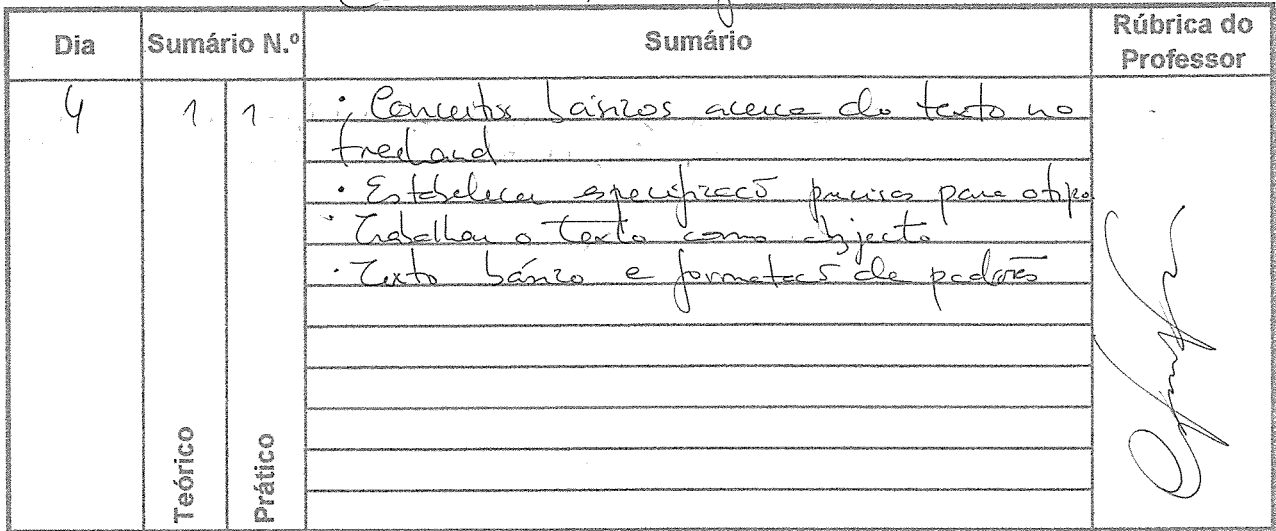 Dia Sumário N.º Sumário Rúbrica do Professor
4 1 1 · Conceitos básicos acerca do texto no
freehand
· Estabelecer especificacõ precisa para o tipo
· Trabalhar o Texto como objecto
· Texto básico e formatacõ de padrões
Teórico Prático